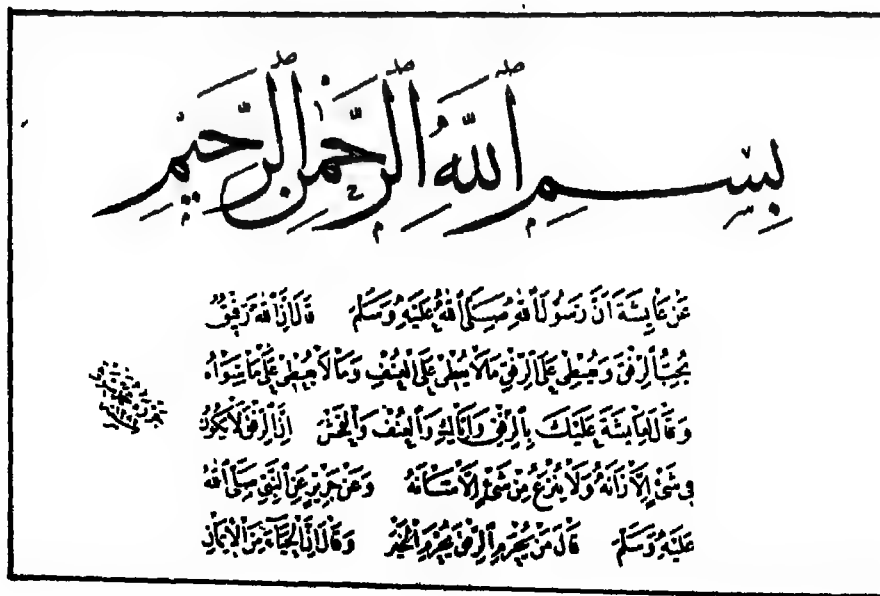 بِسْمِ ٱللَّهِ ٱلرَّحْمٰنِ ٱلرَّحِيمِ
عَنْ عَايِشَةَ اَنَّ رَسُولَ ٱللهِ صَلَّى ٱللهُ عَلَيْهِ وَسَلَّمَ قَالَ اِنَّ ٱللهَ رَفِيقٌ
يُحِبُّ ٱلرِّفْقَ وَيُعْطِى عَلَى ٱلرِّفْقِ مَا لَا يُعْطِى عَلَى ٱلْعُنْفِ وَمَا لَا يُعْطِى عَلَى مَا سِوَاهُ
وَقَالَ لِعَايِشَةَ عَلَيْكِ بِٱلرِّفْقِ وَاِيَّاكِ وَٱلْعُنْفَ وَٱلْفُحْشَ اِنَّ ٱلرِّفْقَ لَا يَكُونُ
فِى شَىْءٍ اِلَّا زَانَهُ وَلَا يُنْزَعُ مِنْ شَىْءٍ اِلَّا شَانَهُ وَعَنْ جَرِيْرٍ عَنِ ٱلنَّبِىِّ صَلَّى ٱللهُ
عَلَيْهِ وَسَلَّمَ قَالَ مَنْ يُحْرَمِ ٱلرِّفْقَ يُحْرَمِ ٱلْخَيْرَ وَقَالَ اِنَّ ٱلْحَيَاءَ مِنَ ٱلْاِيْمَانِ